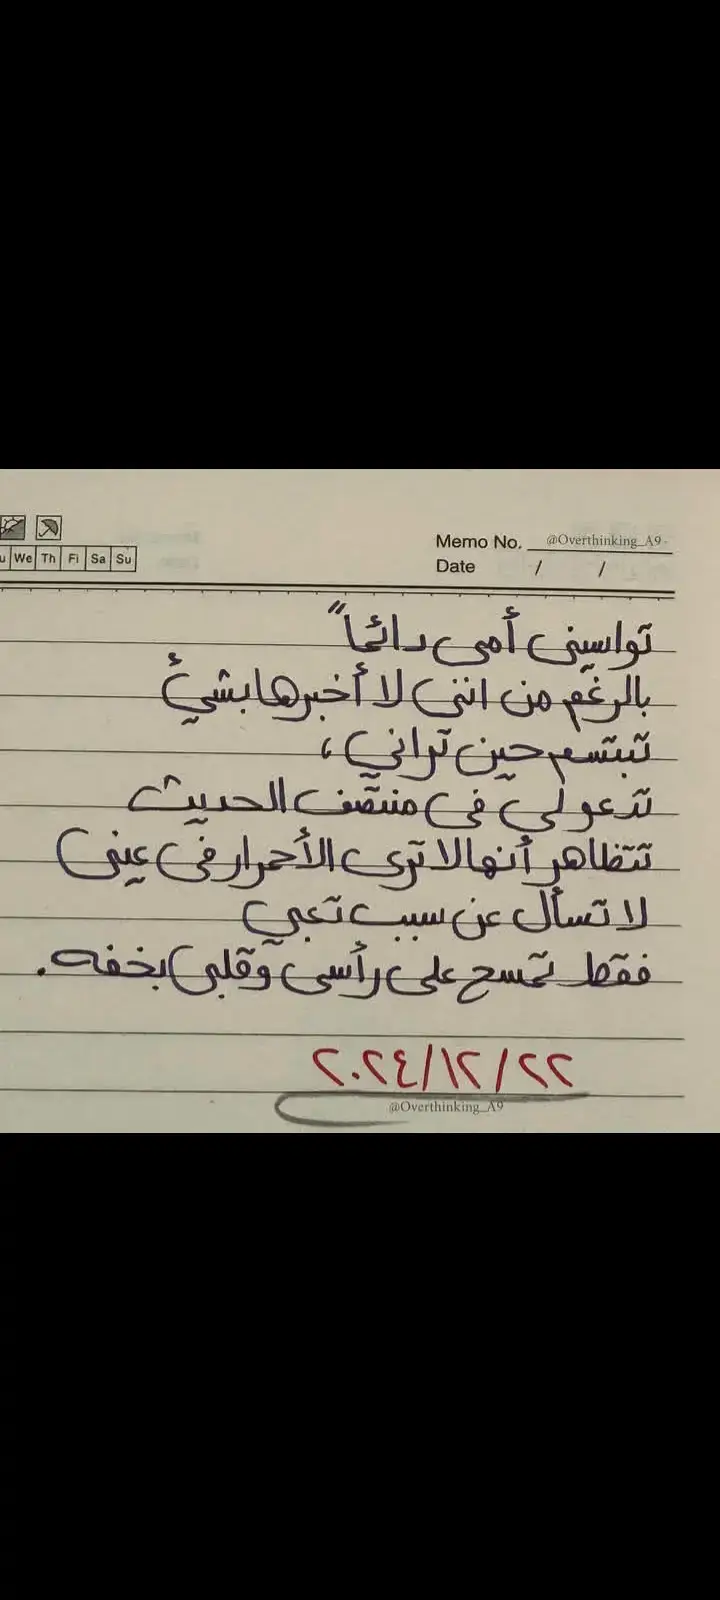 Memo No. @Overthinking_A9
We Th Fi Sa Su
Date / /
تواسيني أمي دائماً
بالرغم من انني لا أخبرها بشيءُ
تبتسم حين تراني ،
تدعو لي في منتصف الحديث
تتظاهر أنها لا ترى الأحمرار في عيني
لا تسأل عن سبب تعبي
فقط تمسح على رأسي وقلبي بخفه .
٢٠٢٤/١٢/٢٢
@Overthinking_A9